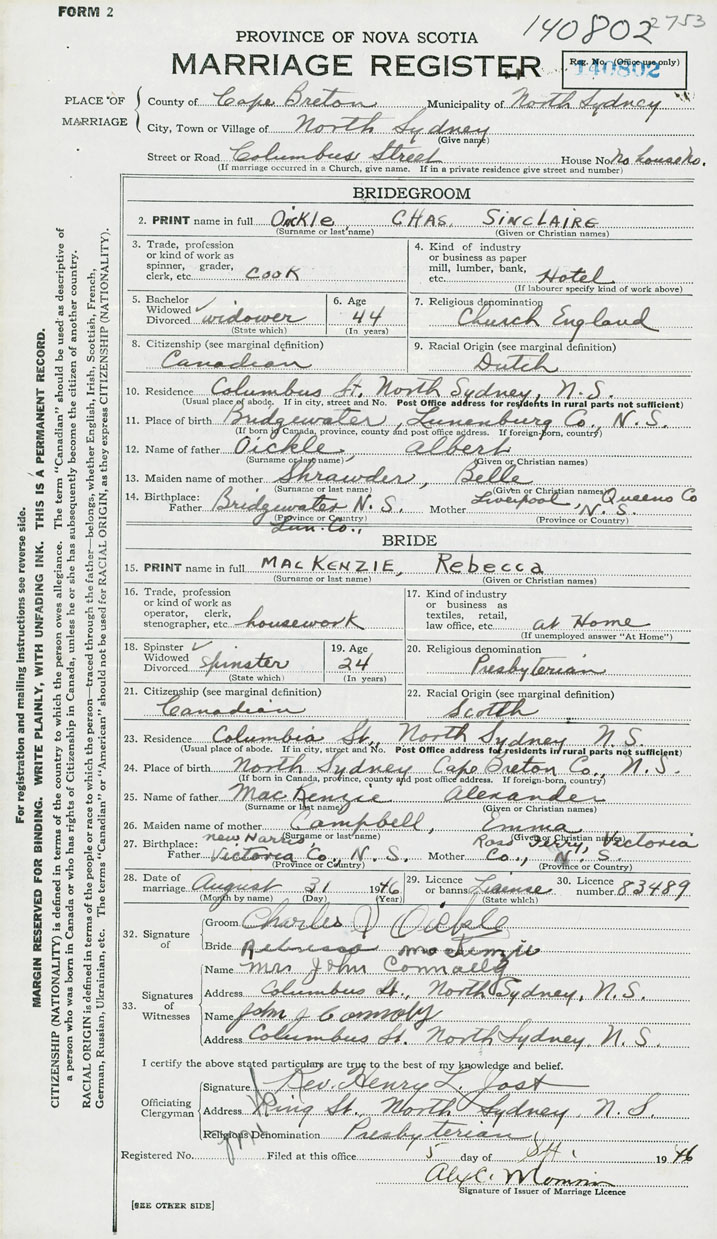 FORM 2
140802 2753
PROVINCE OF NOVA SCOTIA
MARRIAGE REGISTER
Reg. No. (Office use only)
140802
PLACE OF MARRIAGE
County of Cape Breton Municipality of North Sydney
City, Town or Village of North Sydney
(Give name)
Street or Road Columbus Street House No. No house No.
(If marriage occurred in a Church, give name. If in a private residence give street and number)
BRIDEGROOM
2. PRINT name in full Oickle, CHAS. SINCLAIRE
(Surname or last name) (Given or Christian names)
3. Trade, profession or kind of work as spinner, grader, clerk, etc. Cook
4. Kind of industry or business as paper mill, lumber, bank, etc. Hotel
(If labourer specify kind of work above)
5. Bachelor Widowed Divorced widower
(State which)
6. Age 44
(In years)
7. Religious denomination Church England
8. Citizenship (see marginal definition) Canadian
9. Racial Origin (see marginal definition) Dutch
10. Residence Columbus St. North Sydney, N.S.
(Usual place of abode. If in city, street and No. Post Office address for residents in rural parts not sufficient)
11. Place of birth Bridgewater, Lunenburg Co., N.S.
(If born in Canada, province, county and post office address. If foreign-born, country)
12. Name of father Oickle, Albert
(Surname or last name) (Given or Christian names)
13. Maiden name of mother Shrawder, Belle
(Surname or last name) (Given or Christian names)
14. Birthplace: Father Bridgewater N.S. Lun. Co., Mother Liverpool, Queens Co N.S.
(Province or Country) (Province or Country)
BRIDE
15. PRINT name in full MACKENZIE, Rebecca
(Surname or last name) (Given or Christian names)
16. Trade, profession or kind of work as operator, clerk, stenographer, etc. housework
17. Kind of industry or business as textiles, retail, law office, etc. at Home
(If unemployed answer "At Home")
18. Spinster Widowed Divorced Spinster
(State which)
19. Age 24
(In years)
20. Religious denomination Presbyterian
21. Citizenship (see marginal definition) Canadian
22. Racial Origin (see marginal definition) Scotth
23. Residence Columbia St., North Sydney N.S.
(Usual place of abode. If in city, street and No. Post Office address for residents in rural parts not sufficient)
24. Place of birth North Sydney Cape Breton Co., N.S.
(If born in Canada, province, county and post office address. If foreign-born, country)
25. Name of father MacKenzie Alexander
(Surname or last name) (Given or Christian names)
26. Maiden name of mother Campbell, Emma
(Surname or last name) (Given or Christian names)
27. Birthplace: Father New Harris Victoria Co., N.S. Mother Ross Ferry, Victoria Co., N.S.
(Province or Country) (Province or Country)
28. Date of marriage August 31 1946
(Month by name) (Day) (Year)
29. Licence or banns License
(State which)
30. Licence number 83489
32. Signature of
Groom Charles Oickle
Bride Rebecca McKenzie
33. Signatures of Witnesses
Name Mrs John Connally
Address Columbus St., North Sydney, N.S.
Name John J Connoly
Address Columbus St. North Sydney N.S.
I certify the above stated particulars are true to the best of my knowledge and belief.
Officiating Clergyman
Signature Rev. Henry L. Jost
Address King St., North Sydney, N.S.
Religious Denomination Presbyterian
Registered No. Filed at this office 5 day of 1946
Signature of Issuer of Marriage Licence
[SEE OTHER SIDE]
For registration and mailing instructions see reverse side.
MARGIN RESERVED FOR BINDING. WRITE PLAINLY, WITH UNFADING INK. THIS IS A PERMANENT RECORD.
CITIZENSHIP (NATIONALITY) is defined in terms of the country to which the person owes allegiance. The term "Canadian" should be used as descriptive of
a person who was born in Canada or who has rights of Citizenship in Canada, unless he or she has subsequently become the citizen of another country.
RACIAL ORIGIN is defined in terms of the people or race to which the person—traced through the father—belongs, whether English, Irish, Scottish, French,
German, Russian, Ukrainian, etc. The terms "Canadian" or "American" should not be used for RACIAL ORIGIN, as they express CITIZENSHIP (NATIONALITY).